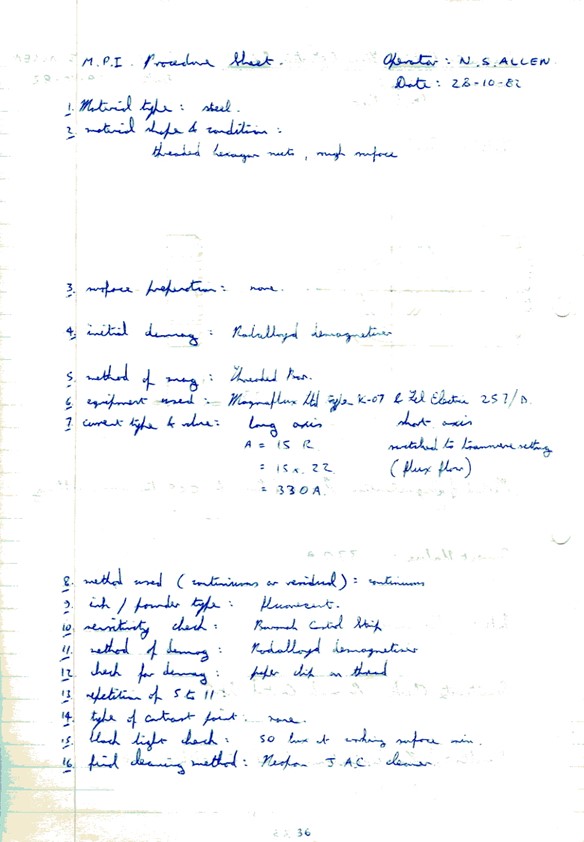 M.P.I. Procedure Sheet. Operator: N.S.ALLEN
Date: 28-10-82
1. Material type: steel.
2. material shape & condition:
threaded hexagon nuts, rough surface
3. surface preparation: none.
4. initial demag: demagnetiser
5. method of mag: Threaded Bar.
6. equipment used: Magnaflux Ltd type K-07 & Electric 257/D.
7. current type & value: long axis short axis
A = 15 R matched to transverse setting
= 15 x .22 (flux flow)
= 330A
8. method used (continuous or residual): continuous
9. ink/powder type: fluorescent.
10. sensitivity check: Burmah Castrol Strip
11. method of demag: demagnetiser
12. check for demag: paper clip on thread
13. repetition of 5 to 11:
14. type of contrast paint: none.
15. black light check: 50 lux at working surface min.
16. final cleaning method: J.A.C. cleaner
36